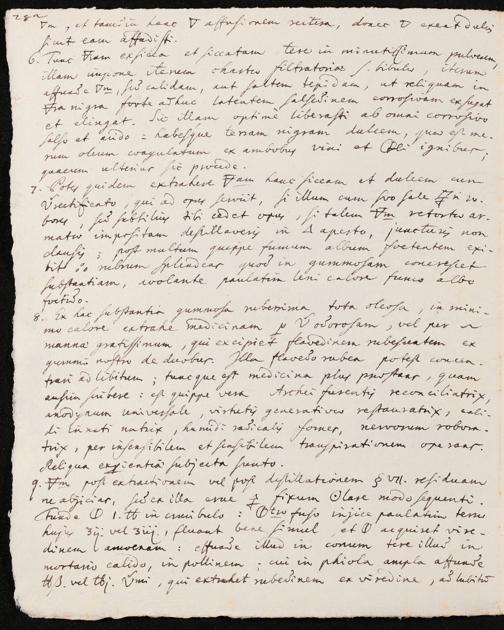 282
▽m, et tamdiu hanc ▽ affusionem reitera, donec ▽ exeat dulcis
sicut eam affudisti.
6. Tunc ▽am exsicca et siccatam tere in minutissimum pulverem,
illam impone iterum chartae filtratoriae s. bibulae, iterum
affunde ▽m, sed calidam, aut saltem tepidam, ut reliquam in
▽ra nigra forte adhuc latentem, salsedinem corrosivam exsugat
et elingat. Sic illam optime liberasti ab omni corrosivo
salso et acido = habesque terram nigram dulcem, quae est me-
rum oleum coagulatum ex ambobus vini et ignibus;
quacum ulterius sic procede.
7. Potes quidem extrahere ▽am hanc siccam et dulcem cum
rectificato, qui ad opus servit, si illum cum suo sale ro-
bores; sed subtilius tibi cedet opus, si talem ▽m retortae ar-
matae impositam destillaveris in △ aperto, juncturis non
clausis; post multum quippe fumum album foetentem exi-
bit rubrum splendens quod in gummosam concrescet
substantiam, avolante paulatim leni calore fumo albo
foetido.
8. Ex hac substantia gummosa ruberrima tota oleosa, in mini-
mo calore extrahe medicinam p odorosam, vel per
manna gratissimum, qui excipiet flavedinem rubescentem ex
gummi nostro de duobus. Illa flavedo rubea potest concen-
trari ad libitum; tuncque est medicina plus praestans, quam
ausim scribere: est quippe vera Archei furentis reconciliatrix,
anodynum universale, virtutis generativae restauratrix, cali-
di innati nutrix, humidi radicalis fomes, nervorum robora-
trix, per insensibilem et sensibilem transpirationem operans.
Reliqua experientiae subjecta sunto.
9. ▽m post extractionem vel post destillationem § VII. residuam
ne abjicias, sed ex illa erue fixum Solare modo sequenti.
Funde 1. ℔ in crucibulo: fuso injice paulatim terrae
hujus ʒij. vel ʒiij, fluant bene simul, et acquiret vire-
dinem amoenam: effunde illud in conum tere illud in
mortario calido, in pollinem; cui in phiola ampla affunde
℔j. vel ℔ij. Vini, qui extrahet rubedinem ex viredine, ad libitum